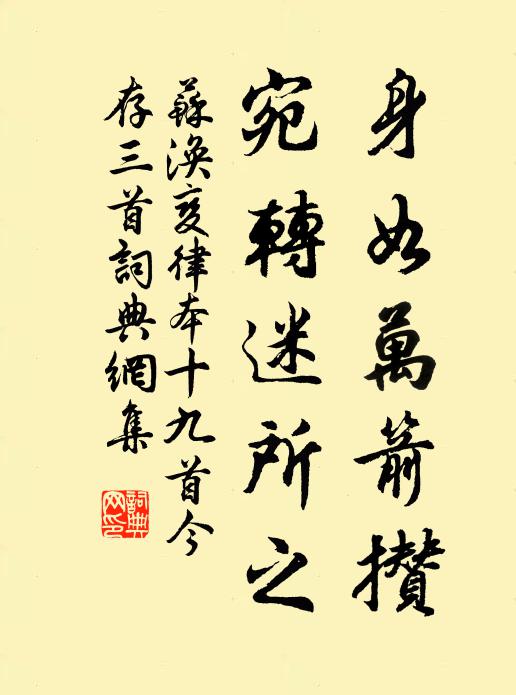 身如萬箭攅
宛轉迷所之
蘇渙變律本十九首今
存三首詞典網集
詞典網印